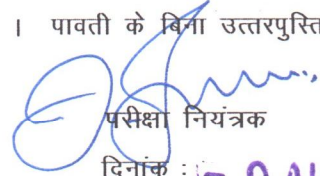 । पावती के बिना उत्तरपुस्ति
परीक्षा नियंत्रक
दिनांक :